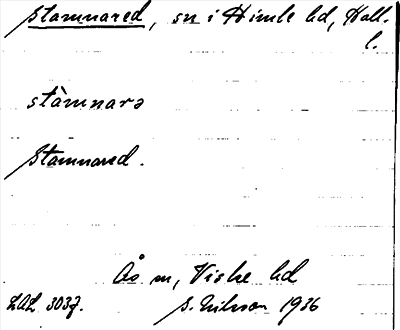 Stamnared, sn i Himle hd, Hall.
l.
stàmnarə
Stamnared.
Ås sn, Viske hd
LAL 3037. S. Nilsson 1936